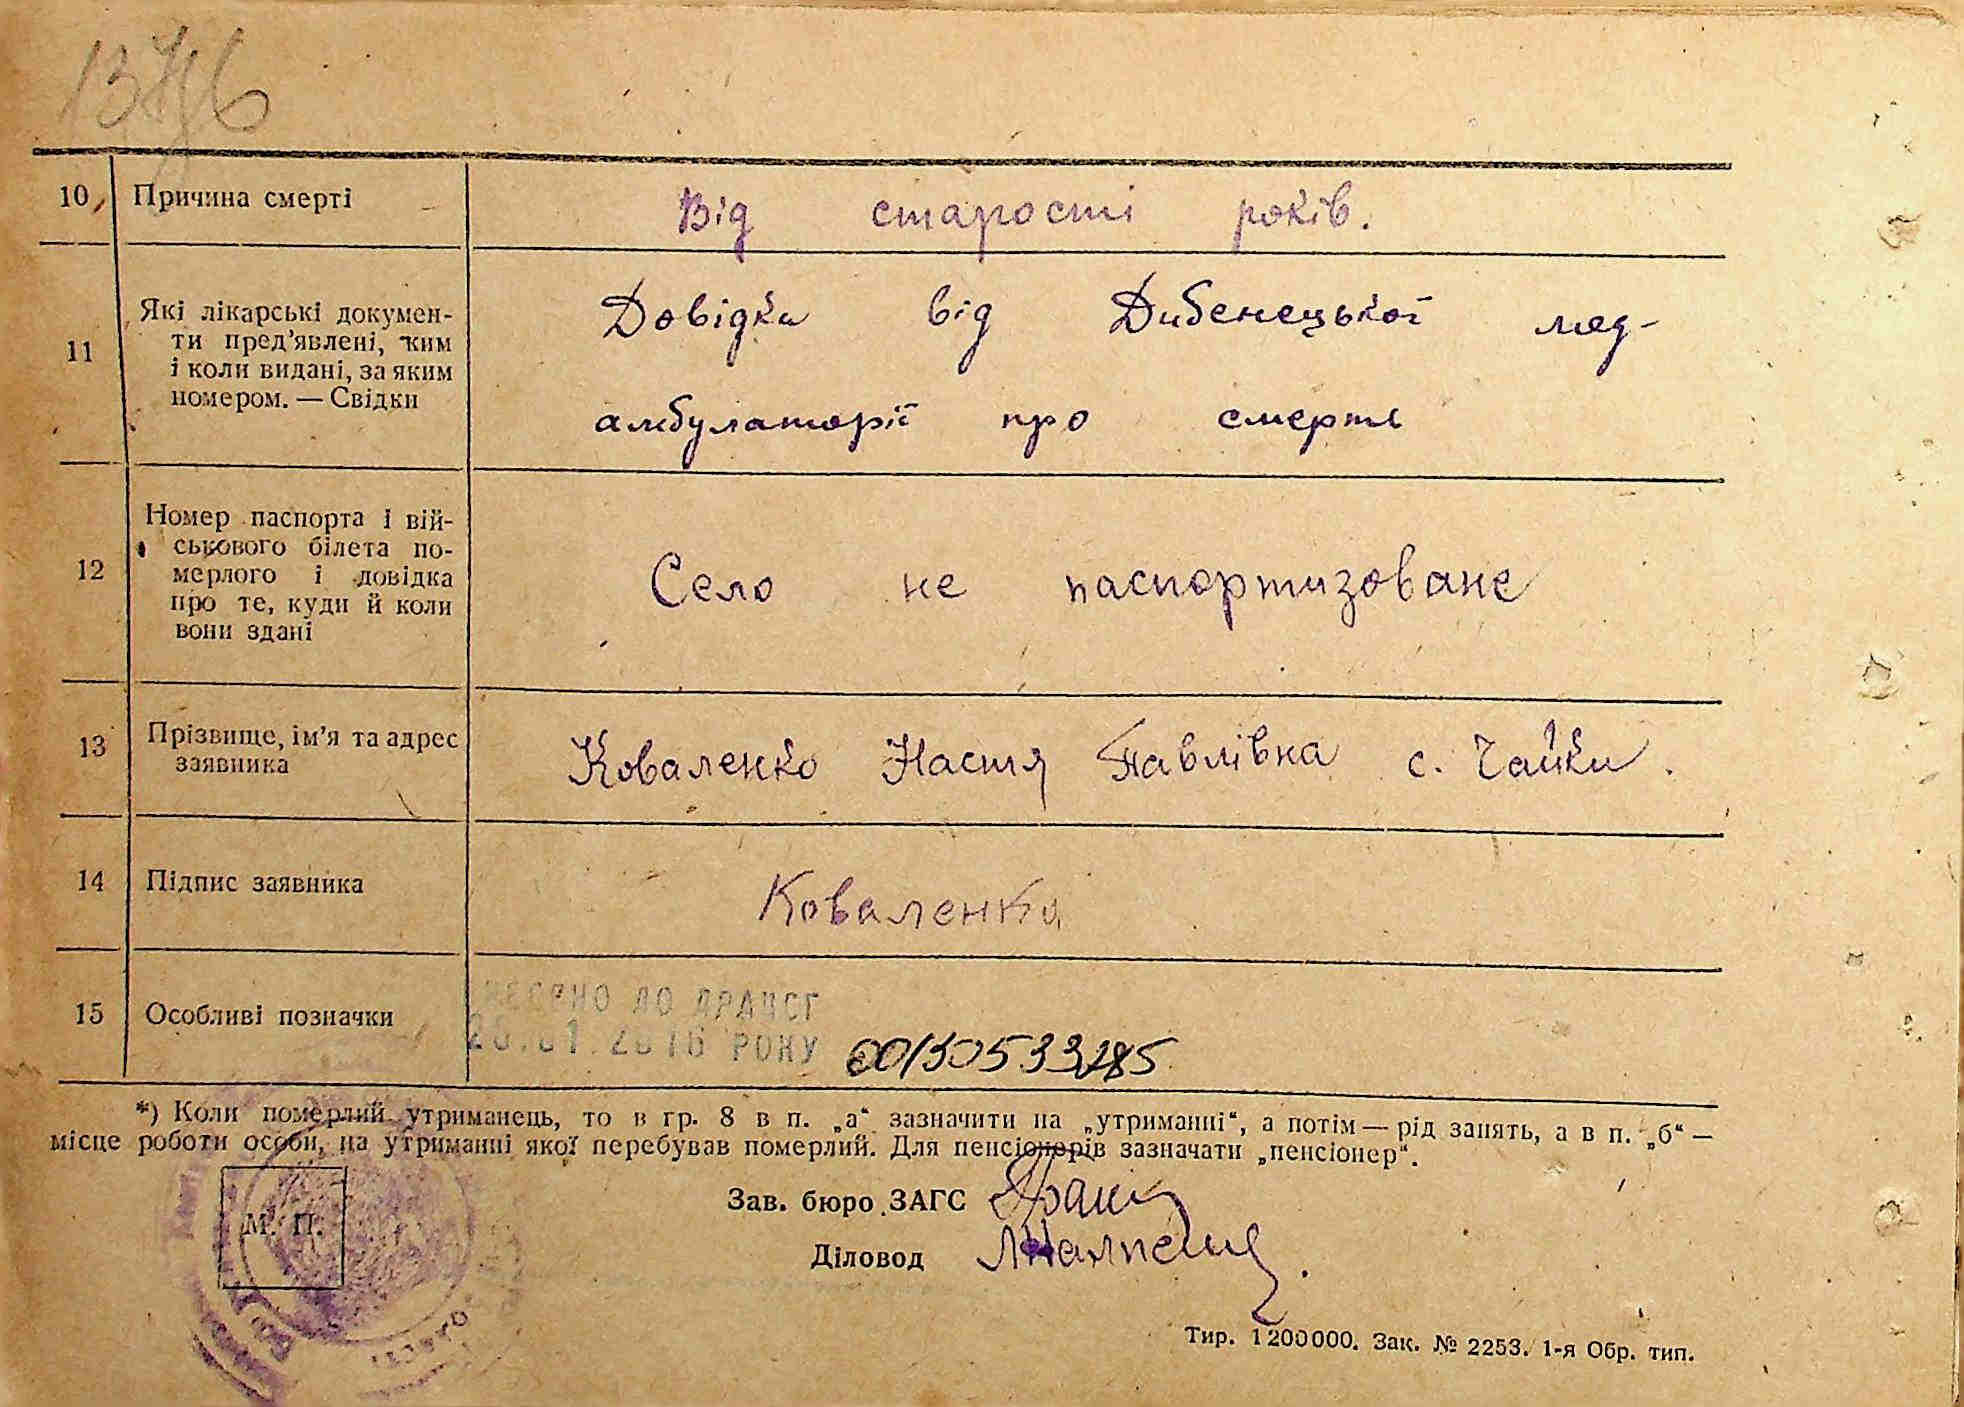 10
Причина смерті
Від старості років.
11
Які лікарські докумен-
ти пред'явлені, ким
і коли видані, за яким
номером. — Свідки
Довідка від Дибенецької мед-
амбулаторії про смерть
12
Номер паспорта і вій-
ськового білета по-
мерлого і довідка
про те, куди й коли
вони здані
Село не паспортизоване
13
Прізвище, ім'я та адрес
заявника
Коваленко Настя Павлівна с. Чайки.
14
Підпис заявника
Коваленко
15
Особливі позначки
ДО ДРАЦСГ
РОКУ 00130533285
*) Коли померлий утриманець, то в гр. 8 в п. „а“ зазначити на „утриманні“, а потім — рід занять, а в п. „б“ —
місце роботи особи, на утриманні якої перебував померлий. Для пенсіонерів зазначати „пенсіонер“.
М. П.
Зав. бюро ЗАГС
Діловод
Тир. 1200000. Зак. № 2253. 1-я Обр. тип.